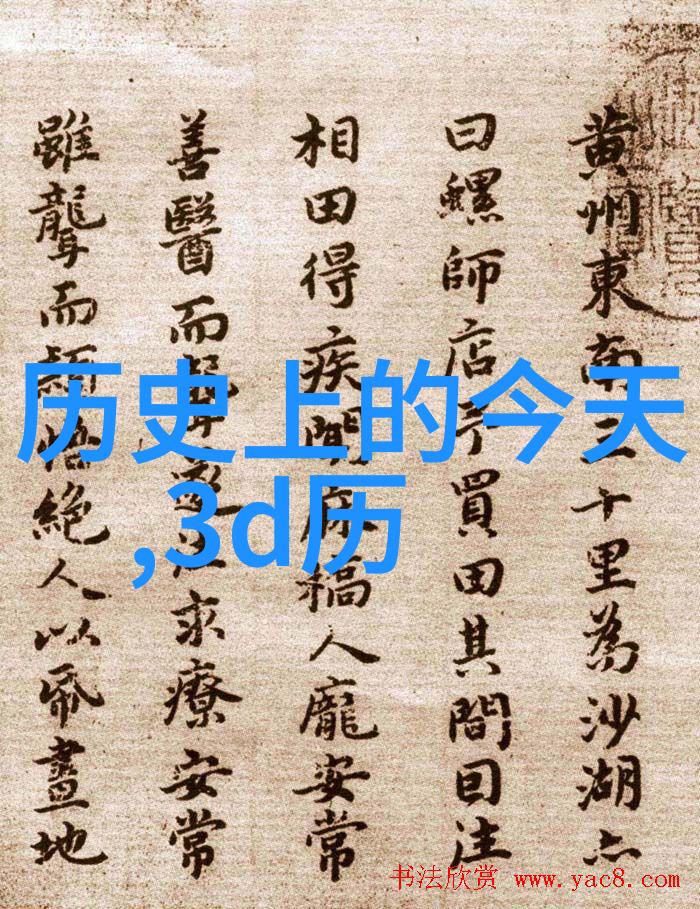 黄州東南三十里為沙湖亦
曰螺師店予買田其間囙往
相田得疾聞麻橋人龐安常
善醫而聾遂往求療安常
雖聾而穎悟絶人以帋畫地
历史上的今天
,3d历
书法欣赏 www.yac8.com